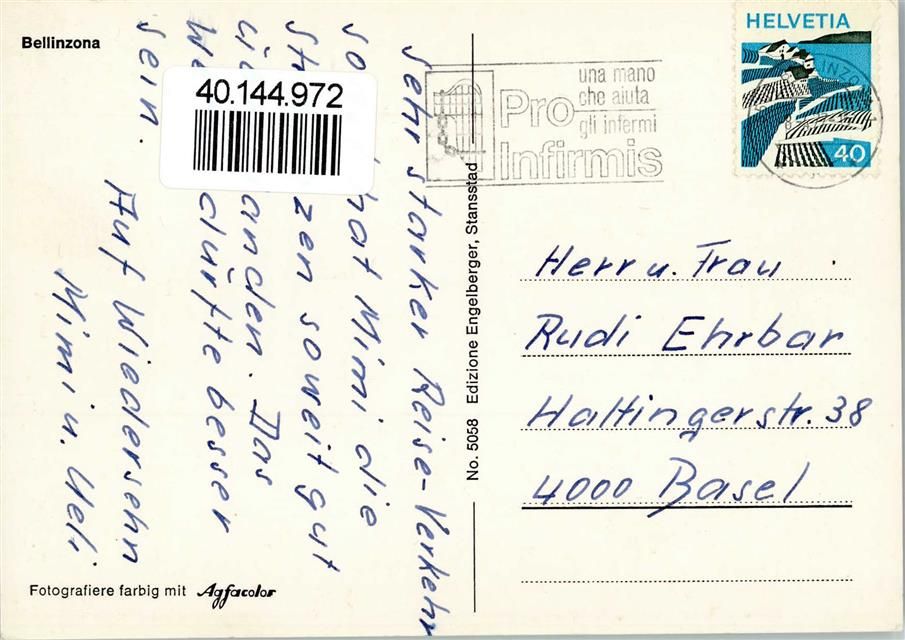 Bellinzona
40.144.972
Sehr starker Reise-Verkehr
so hat Mimi die
zen soweit gut
anden. Das
dürfte besser
sein. Auf Wiedersehn
Mimi u. Ueli
Fotografiere farbig mit Agfacolor
No. 5058 Edizione Engelberger, Stansstad
Pro Infirmis
una mano
che aiuta
gli infermi
HELVETIA
40
Herr u. Frau
Rudi Ehrbar
Haltingerstr. 38
4000 Basel